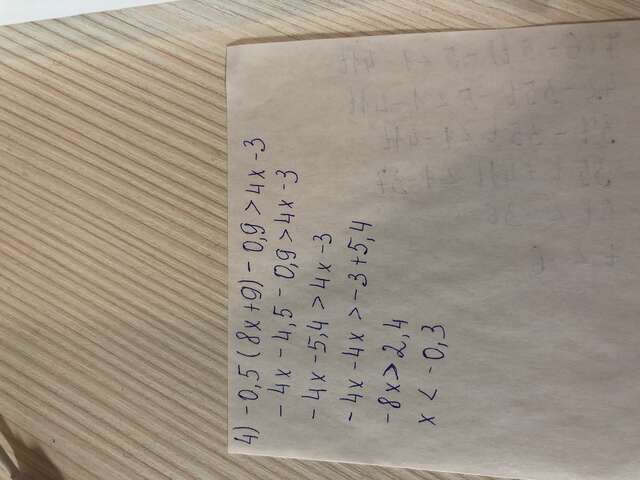 4) -0,5(8x+9)-0,9>4x-3
-4x-4,5-0,9>4x-3
-4x-5,4>4x-3
-4x-4x>-3+5,4
-8x>2,4
x < -0,3